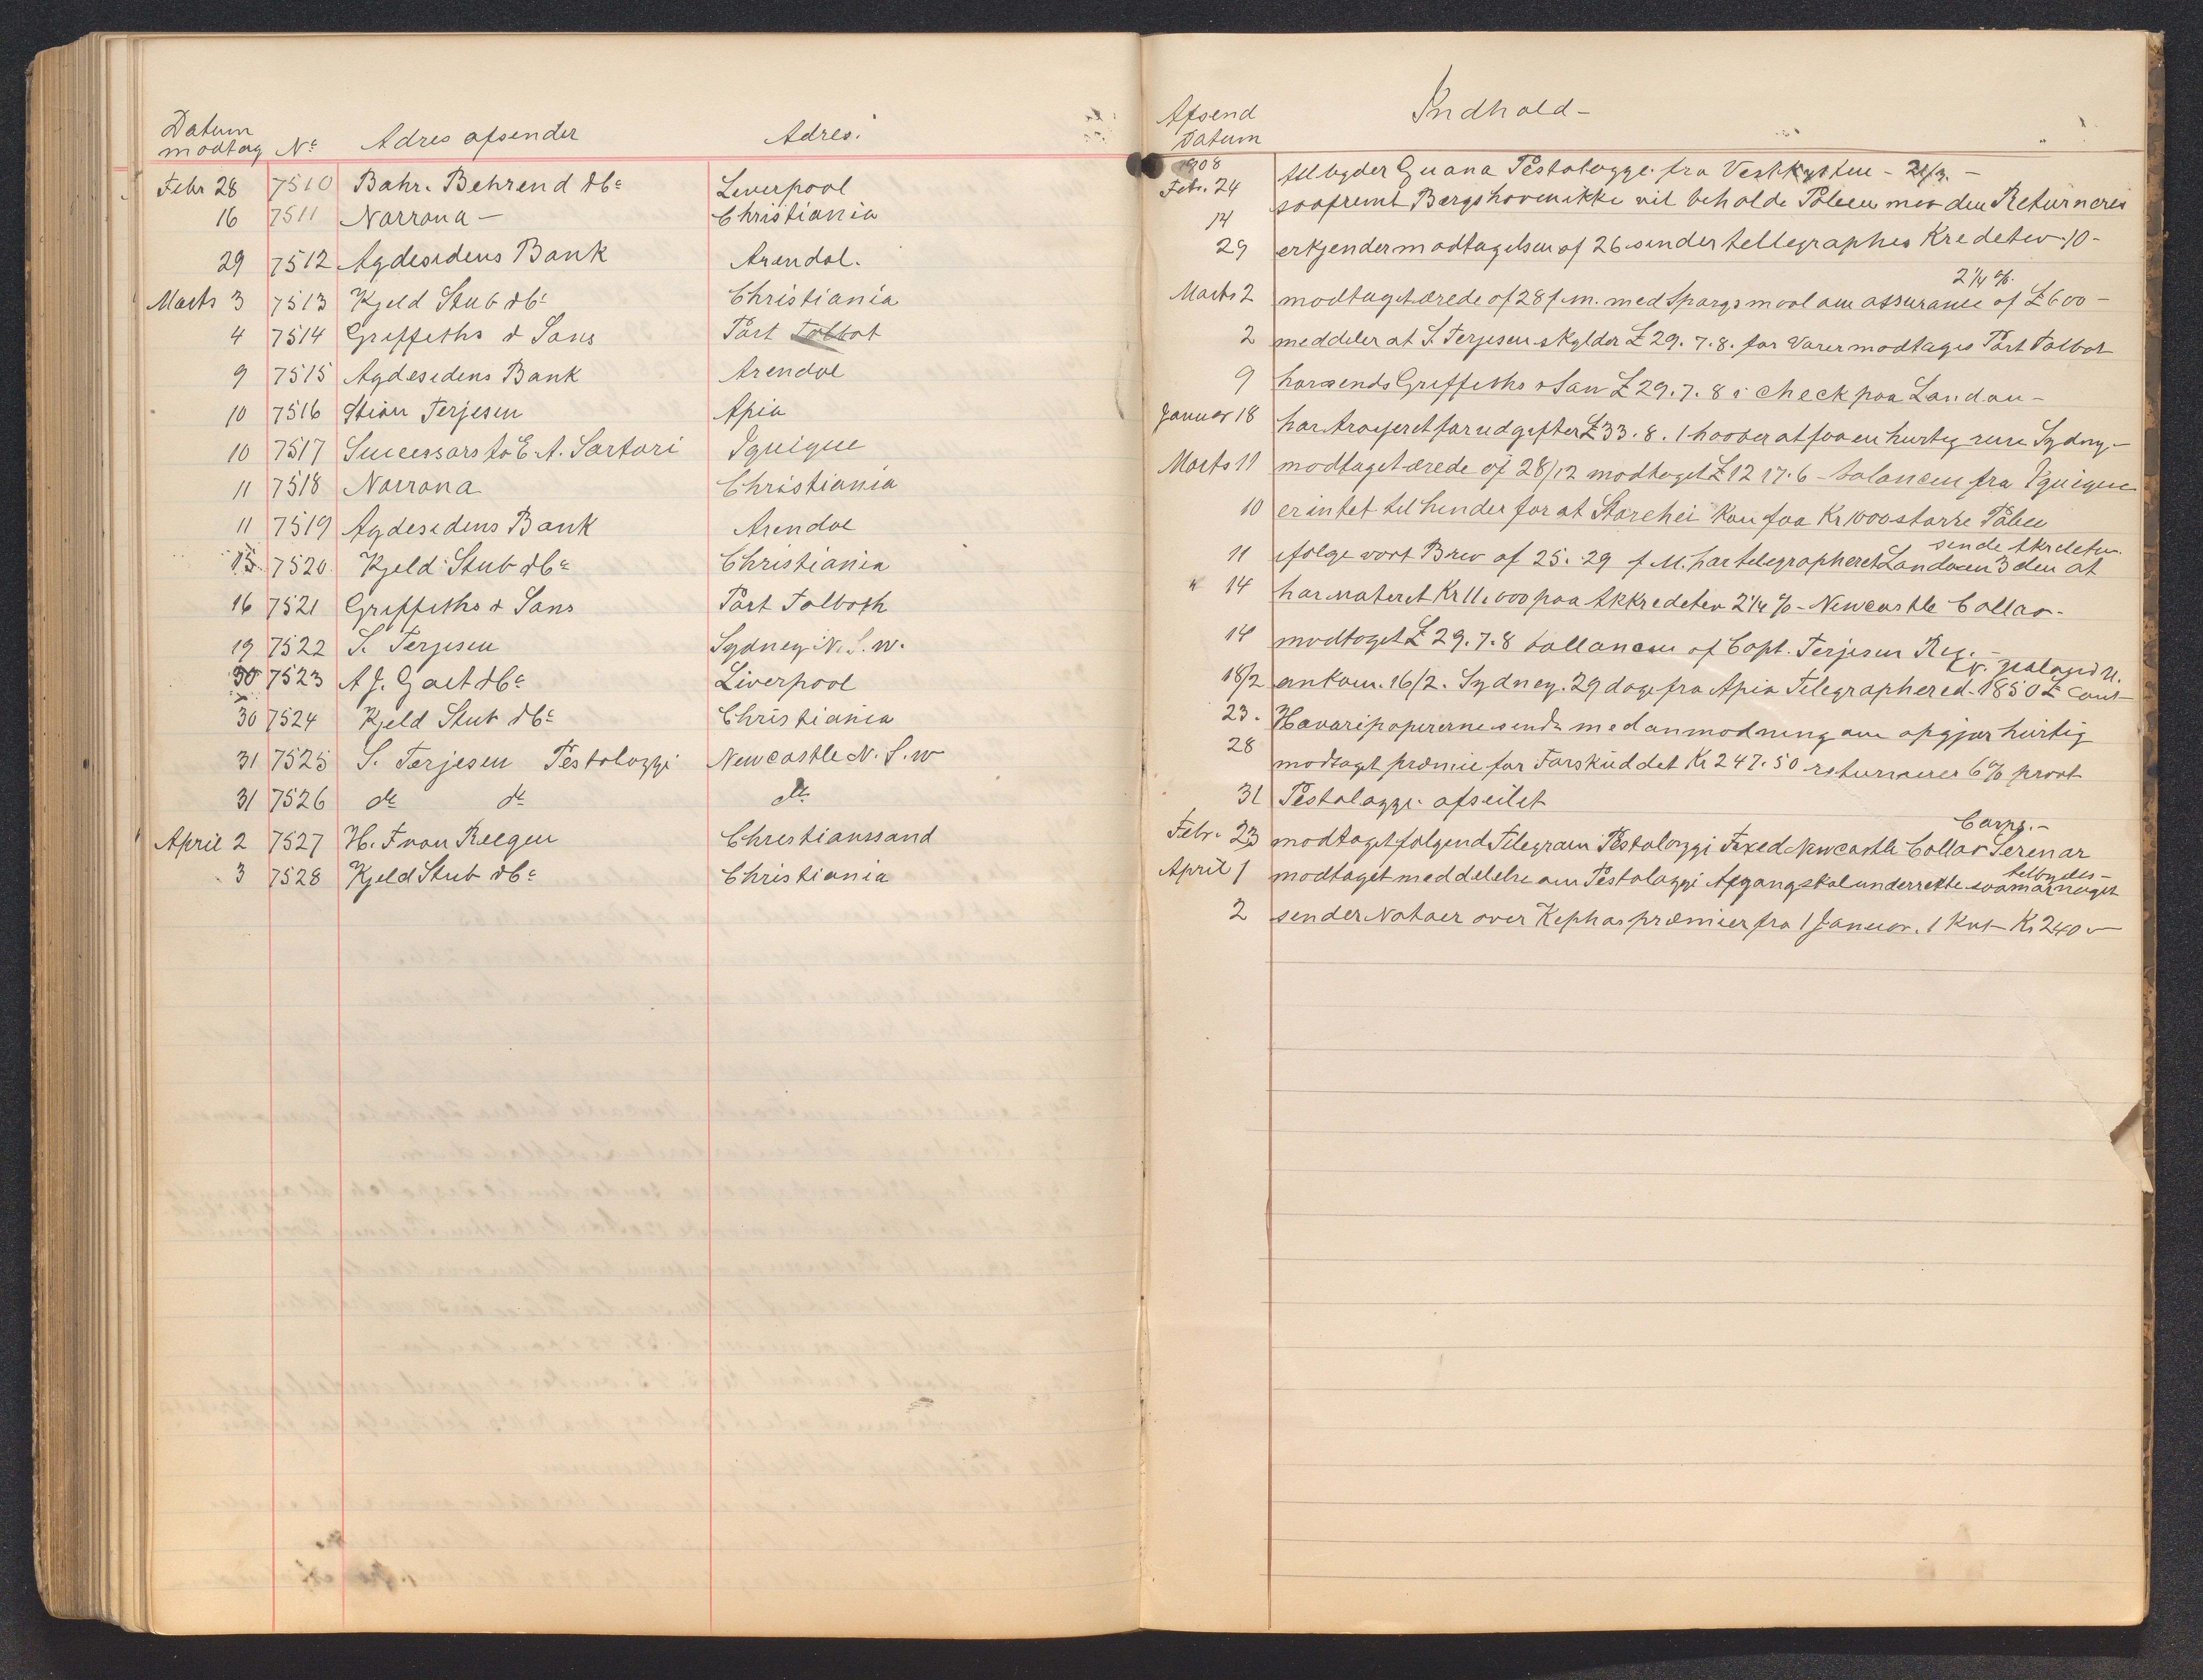 Datum
modtag Nº Adres afsender Adres.
Febr 28 7510 Bahr. Behrend & Cº Liverpool
16 7511 Norrona - Christiania
29 7512 Agdesidens Bank Arendal.
Marts 3 7513 Kjeld Stub & Cº Christiania
4 7514 Griffiths & Sons Port Talbot
9 7515 Agdesidens Bank Arendal
10 7516 Stian Terjesen Apia
10 7517 Successors to E. A. Sartori Iquique
11 7518 Norrona Christiania
11 7519 Agdesidens Bank Arendal
15 7520 Kjeld Stub & Cº Christiania
16 7521 Griffiths & Sons Port Talboth
19 7522 S. Terjesen Sydney N. S. W.
30 7523 A J. Gaet & Cº Liverpool
30 7524 Kjeld Stub & Cº Christiania
31 7525 S. Terjesen Pestolozzi Newcastle N. S. W
31 7526 do do do
April 2 7527 H. F von Reegen Christianssand
3 7528 Kjeld Stub & Cº Christiania
Afsend
Datum Indhold -
1908
Febr. 24 tilbyder Guana Pestolozzi fra Vestkysten -
14 saafremt Bergshaven ikke vil beholde Polisen maa den Returneres
29 erkjender modtagelsen af 26 sender tellegraphes Kreditiv 10-
2 1/4 %.
Marts 2 modtaget ærede af 28 f.m. med Spørgsmaal om assurance af £600 -
2 meddeler at S. Terjesen skylder £ 29. 7. 8. for Varer modtages Port Talbot
9 har sendt Griffiths & Son £ 29. 7. 8 i check paa London -
Januar 18 har trasseret for udgifter £33. 8. 1 haaber at faa en hurtig reise Sydney -
Marts 11 modtaget ærede af 28/12 modtaget £ 12 17. 6 - balancen fra Iquique
10 er intet til hinder for at Storehei kan faa Kr 1000 større Police
sende Akreditiv
11 ifølge vort Brev af 25. 29 f M. har telegrapheret London 3 den at
" 14 har noteret Kr 11,000 paa Akkreditiv 2 1/4 % - Newcastle Callao -
14 modtaget £ 29. 7. 8 ballancen af Capt. Terjesen Reg. -
18/2 ankom. 16/2. Sydney. 29 dage fra Apia Telegraphered. 1850 £ Cont
23. Havaripapirerne sendt med anmodning om opgjør hurtig
28 modtaget præmie for Forskuddet Kr 247. 50 returnerer 6% provt
31 Pestolazzi afseilet
Carps. -
Febr. 23 modtaget følgend Telegram Pestolozzi Fixed Newcastle Callao Serenar
tilbydes -
April 1 modtaget meddelelse om Pestolozzi Afgang skal underrette saasnar noget
2 sender Notaer over Kephas præmier fra 1 Januar. 1 Kvt - Kr 240 -